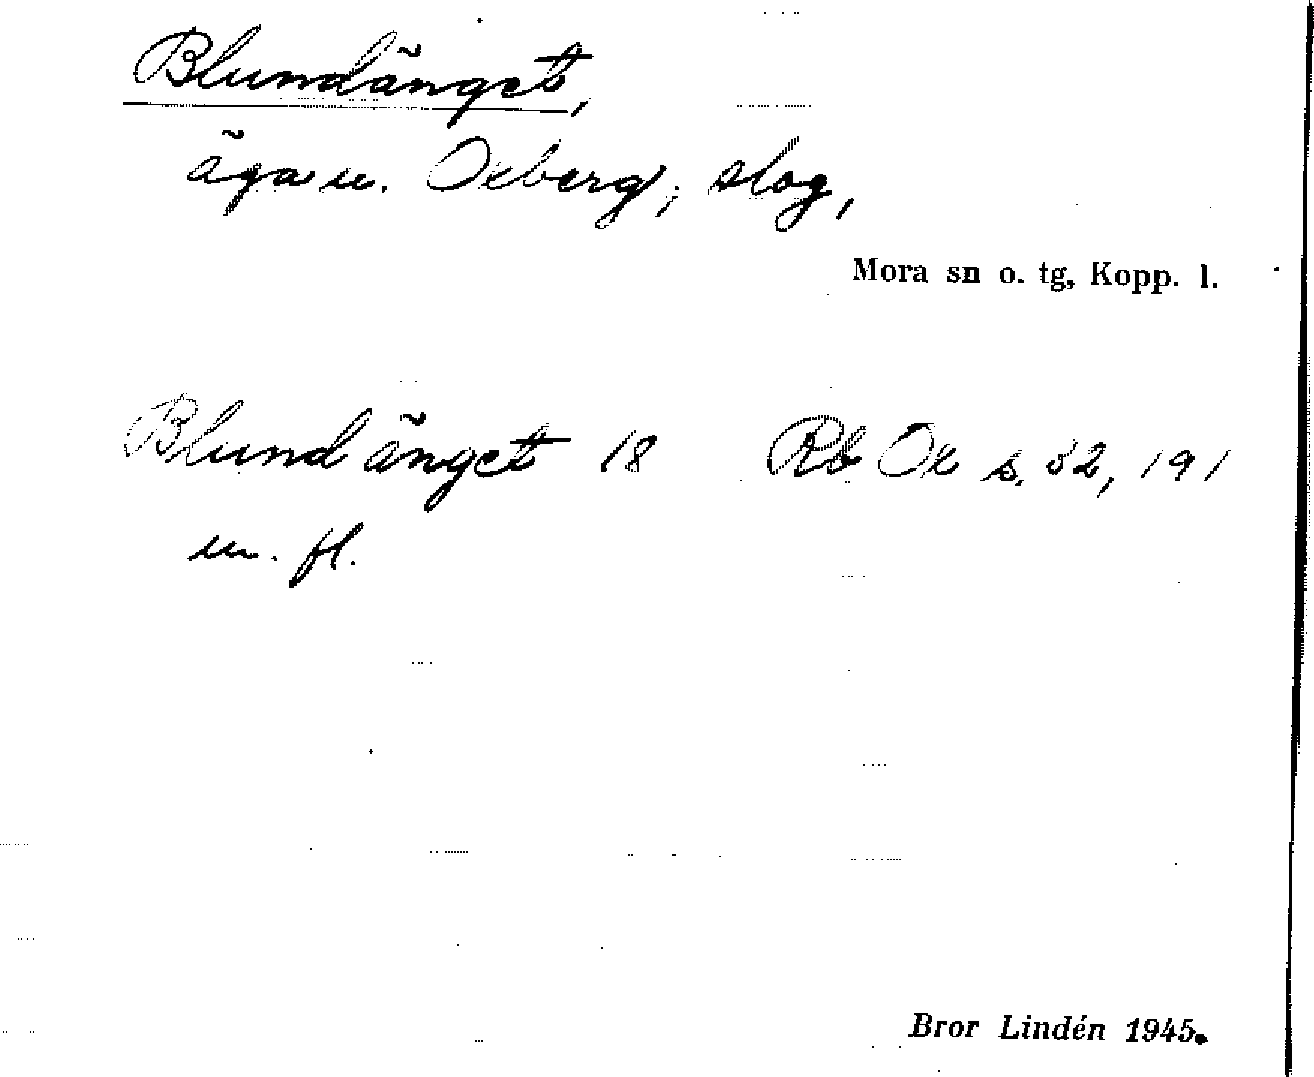 Blundänget,
äga u. Oxberg; slog,
Mora sn o. tg, Kopp. l.
Blundänget 18 Rb Ox s. 32, 191
m. fl.
Bror Lindén 1945.